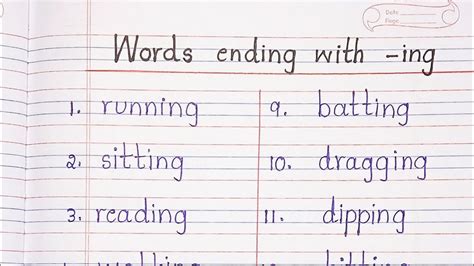 Date
Page
Words ending with -ing
1. running
2. sitting
3. reading
9. batting
10. dragging
11. dipping